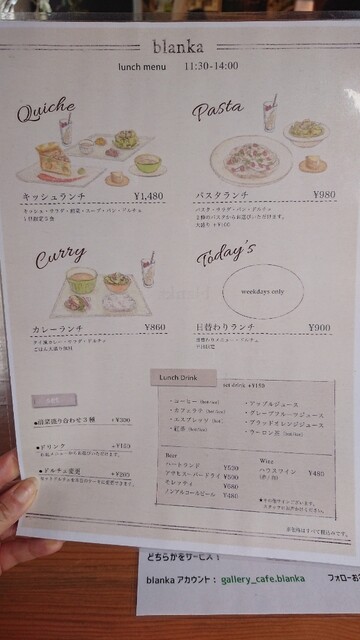 blanka
lunch menu 11:30-14:00
Quiche
キッシュランチ ¥1,480
キッシュ・サラダ・前菜・スープ・パン・ドルチェ
1日限定5食
Pasta
パスタランチ ¥980
パスタ・サラダ・パン・ドルチェ
2種のパスタからお選びいただけます。
大盛り +¥100
Curry
カレーランチ ¥860
タイ風カレー・サラダ・ドルチェ
ごはん大盛り無料
Today's
weekdays only
日替わりランチ ¥900
日替わりメニュー・ドルチェ
set
●前菜盛り合わせ3種 +¥300
●ドリンク +¥150
●ドルチェ変更
Lunch Drink
set drink +¥150
・コーヒー (hot・ice)
・カフェラテ (hot・ice)
・エスプレッソ (hot)
・紅茶 (hot・ice)
・アップルジュース
・グレープフルーツジュース
・ブラッドオレンジジュース
・ウーロン茶
Beer
ハートランド ¥520
アサヒスーパードライ
モレッティ ¥680
ノンアルコールビール ¥480
Wine
ハウスワイン ¥480
(赤/白)
●その他ワインございます。
スタッフにお声かけください。
※金額はすべて税込みです。
どちらかをサービス!
blanka アカウント: gallery_cafe.blanka フォローお